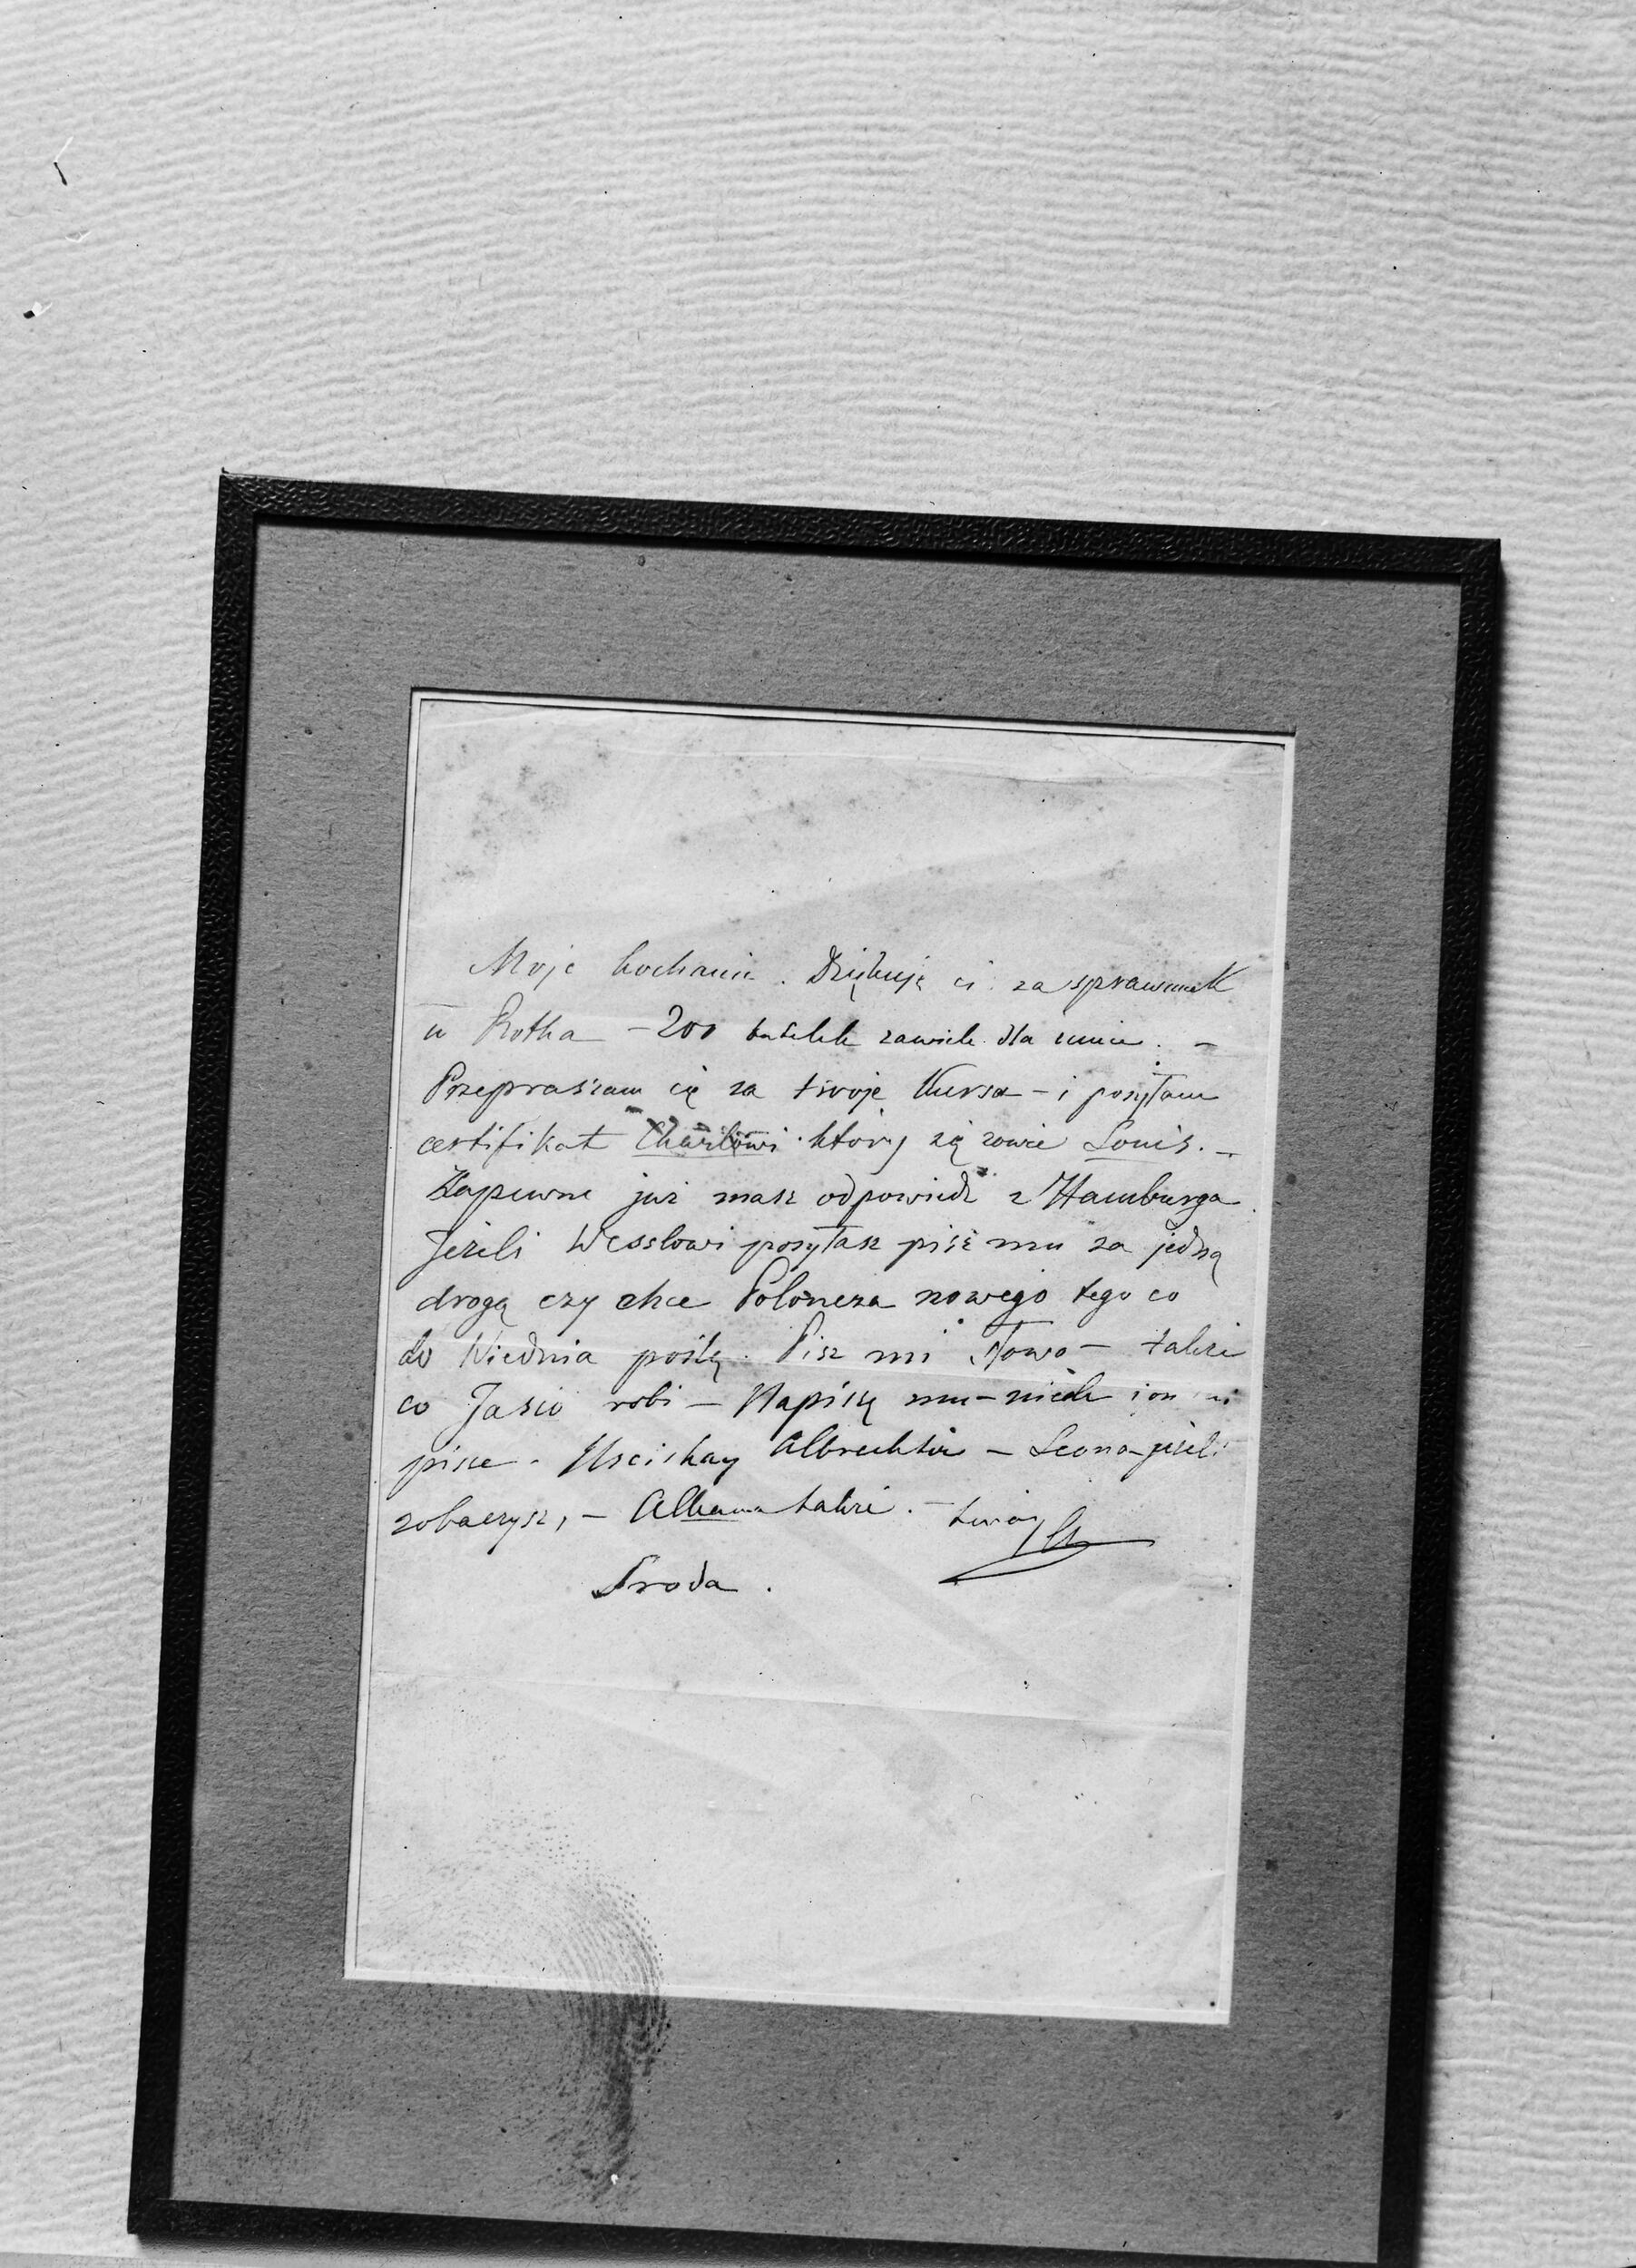 Moje kochanie. Dziękuję ci za sprawunek
u Rotha – 200 butelek zawiele dla mnie. –
Przepraszam cię za twoje Kursa – i posyłam
certifikat Charlowi który się zowie Louis. –
Zapewne już masz odpowiedź z Hamburga
Jeżeli Wesslowi posyłasz pisz mu za jedną
drogą czy chce Poloneza nowego tego co
do Wiednia poślę. Pisz mi słowo – także
co Jasio robi – Napiszę mu – niech i on mi
pisze – Uściskay Albrechta – Leona jeżeli
zobaczysz, – Alkana także. – twój
Sroda.